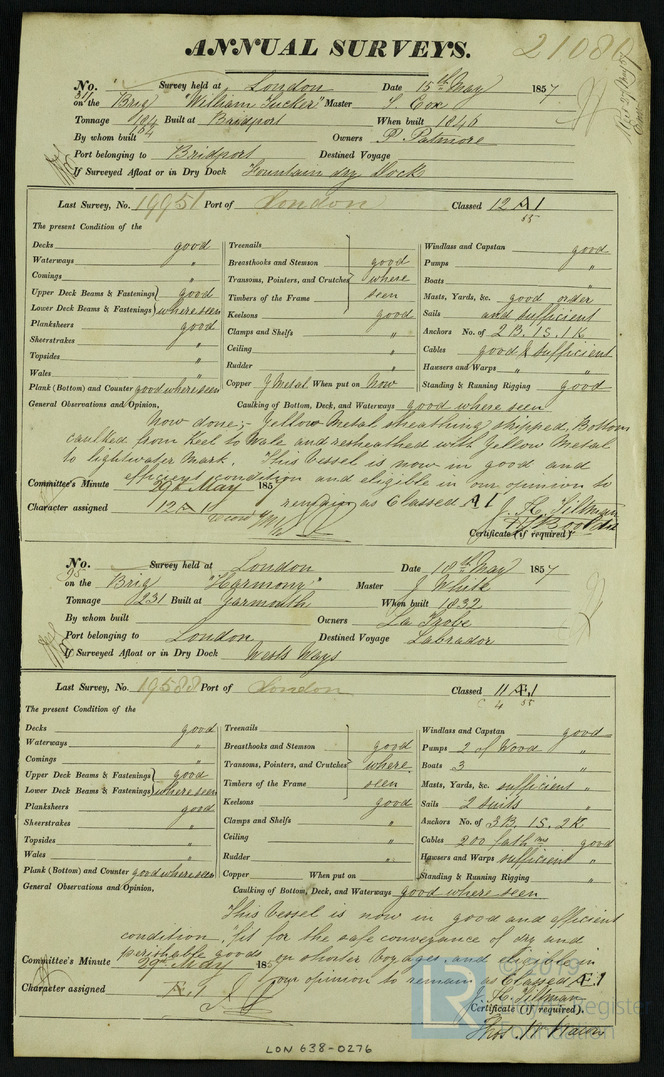 ANNUAL SURVEYS.
21080
No. 311 Survey held at London Date 15th May 1857
on the Brig "William Tucker" Master S. Cox
Tonnage 184 Built at Bridport When built 1846
By whom built Owners P. Patmore
Port belonging to Bridport Destined Voyage
If Surveyed Afloat or in Dry Dock Fountain dry Dock
Last Survey, No. 19951 Port of London Classed 12 A 1
55
The present Condition of the
Decks good Treenails Windlass and Capstan good
Waterways " Breasthooks and Stemson good Pumps "
Comings " Transoms, Pointers, and Crutches where Boats "
Upper Deck Beams & Fastenings good Timbers of the Frame seen Masts, Yards, &c. good order
Lower Deck Beams & Fastenings where seen Keelsons good Sails and sufficient
Planksheers good Clamps and Shelfs " Anchors No. of 2 B. 1 S. 1 K
Sheerstrakes " Ceiling " Cables good & sufficient
Topsides " Rudder " Hawsers and Warps " "
Wales " Copper Y Metal When put on Now Standing & Running Rigging good
Plank (Bottom) and Counter good where seen
General Observations and Opinion, Caulking of Bottom, Deck, and Waterways good where seen
Now done;- Yellow Metal sheathing stripped, Bottom
caulked from Keel to Wale and resheathed with Yellow Metal
to lightwater mark. This Vessel is now in good and
efficient condition and eligible in our opinion to
remain as Classed A 1
Committee's Minute 29th May 1857
Character assigned 12 A 1
J. H. Tillman
Certificate (if required)
No. 95 Survey held at London Date 18th May 1857
on the Brig "Harmony" Master J White
Tonnage 231 Built at Yarmouth When built 1832
By whom built Owners La Trobe
Port belonging to London Destined Voyage Labrador
If Surveyed Afloat or in Dry Dock Wests Ways
Last Survey, No. 19588 Port of London Classed 11 Æ 1
4 55
The present Condition of the
Decks good Treenails Windlass and Capstan good
Waterways " Breasthooks and Stemson good Pumps 2 of Wood "
Comings " Transoms, Pointers, and Crutches where Boats 3 "
Upper Deck Beams & Fastenings good Timbers of the Frame seen Masts, Yards, &c. sufficient "
Lower Deck Beams & Fastenings where seen Keelsons good Sails 2 suits "
Planksheers good Clamps and Shelfs " Anchors No. of 3 B. 1 S. 2 K
Sheerstrakes " Ceiling " Cables 200 fathms good
Topsides " Rudder " Hawsers and Warps sufficient "
Wales " Copper When put on Standing & Running Rigging "
Plank (Bottom) and Counter good where seen
General Observations and Opinion, Caulking of Bottom, Deck, and Waterways good where seen
This Vessel is now in good and efficient
condition, fit for the safe conveyance of dry and
perishable goods on shorter Voyages and eligible in
our opinion to remain as Classed Æ 1
Committee's Minute 29th May 185
Character assigned Æ 1
J. H. Tillman
Certificate (if required).
© 2019
Lloyd's Register
Foundation
LON 638-0276